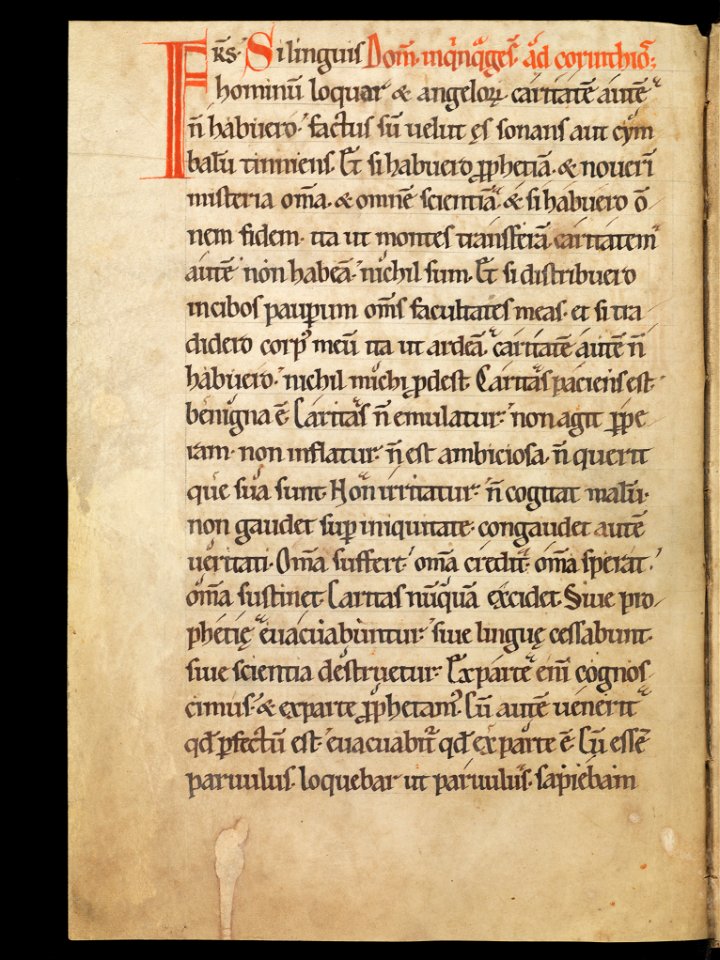 Frs̄. Si linguis Dom̄. in q̇nq̇ges̄. ad corinthioɀ;
hominū loquar & angeloꝝ. caritatē autē
n̄ habuero. factus sū uelut ęs sonans aut cym
balū tinniens. Et si habuero ꝓphetiā. & nouerī
misteria om̄a. & omnē scientiā. & si habuero ō
nem fidem. ita ut montes transferā. caritatem
autē non habeā. nichil sum. Et si distribuero
in cibos pauꝑum om̄s facultates meas. et si tra
didero corpꝰ meū ita ut ardeā. caritatē autē n̄
habuero. nichil michi ꝓdest. Caritas paciens est.
benigna ē. Caritas n̄ emulatur. non agit ꝑpe
ram. non inflatur. n̄ est ambiciosa. n̄ querit
que sua sunt. Non irritatur. n̄ cogitat malū.
non gaudet suꝑ iniquitate. congaudet autē
ueritati. Om̄a suffert. om̄a credit. om̄a sperat.
om̄a sustinet. Caritas nūquā excidet. Siue pro
phetię euacuabuntur. siue linguę cessabunt.
siue scientia destruetur. Ex parte eni̅ cognos
cimus. & ex parte ꝓphetamꝰ. Cū autē uenerit
qd̄ ꝑfectū est. euacuabit̄ qd̄ ex parte ē. Cū essē
paruulus. loquebar ut paruulus. sapiebam